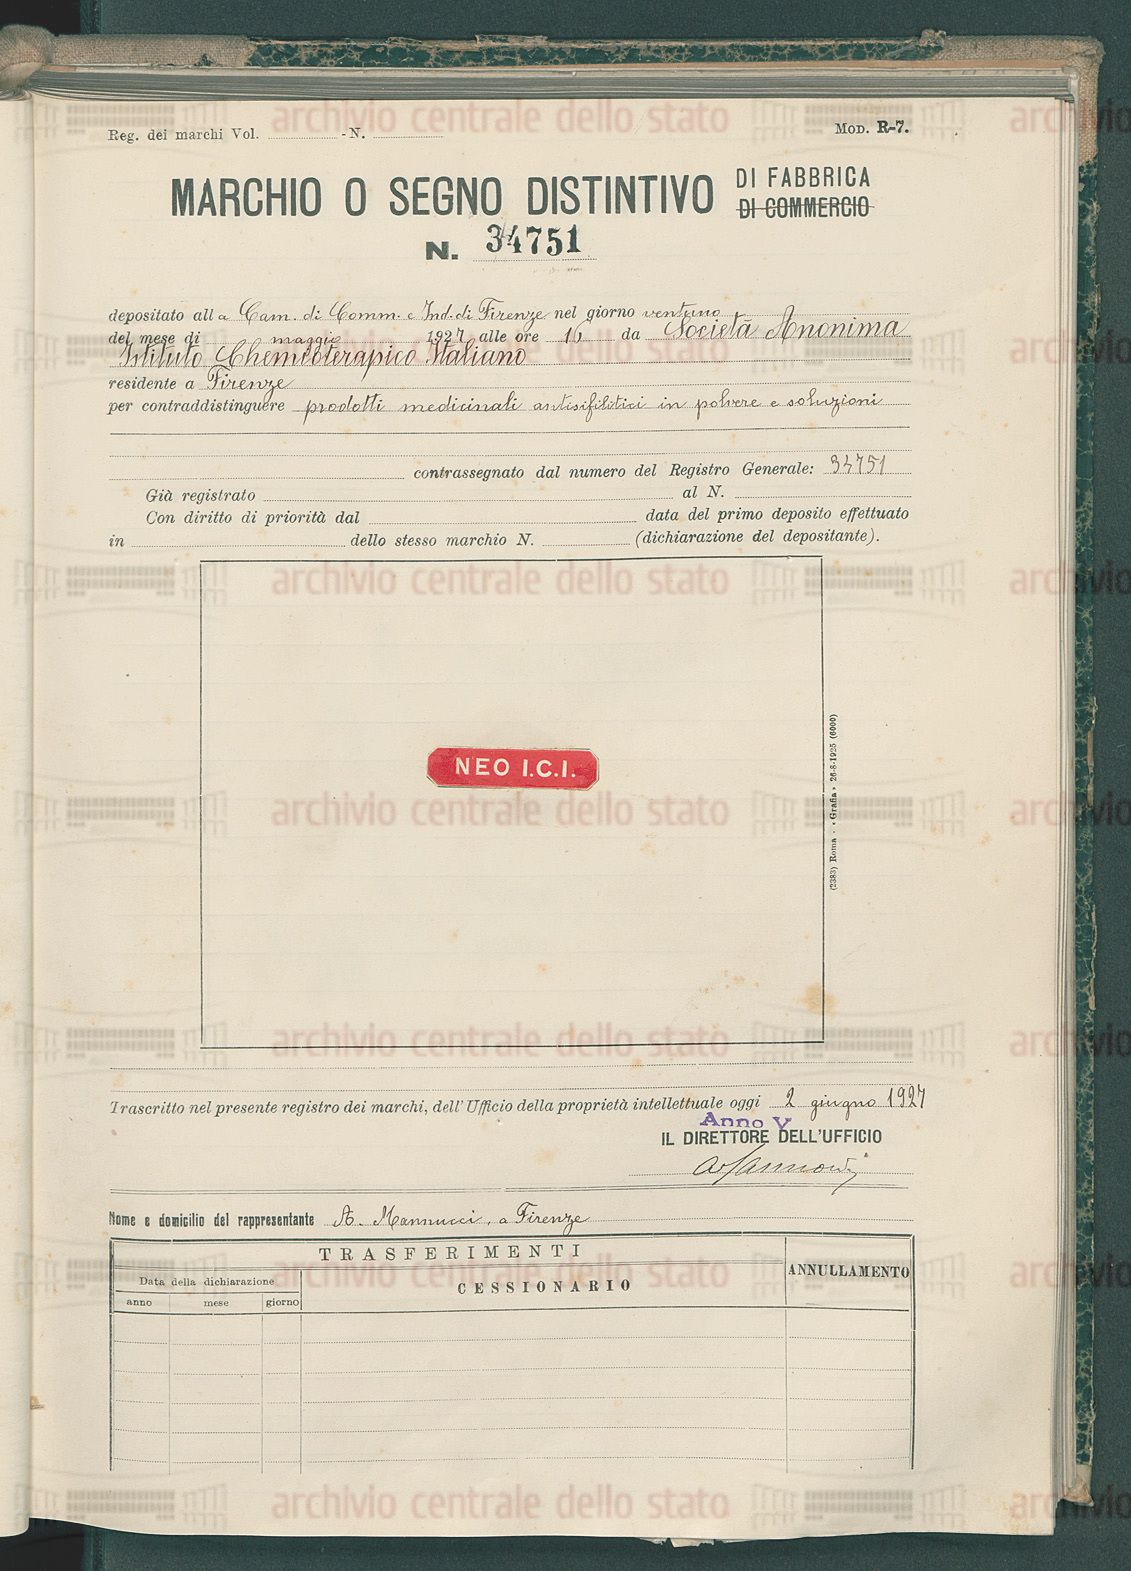 Reg. dei marchi Vol. - N. MOD. R-7.
MARCHIO O SEGNO DISTINTIVO DI FABBRICA
DI COMMERCIO
N. 34751
depositato alla Cam. di Comm. e Ind. di Firenze nel giorno ventuno
del mese di maggio 1927 alle ore 16 da Società Anonima
Istituto Chemioterapico Italiano
residente a Firenze
per contraddistinguere prodotti medicinali antisifilitici in polvere e soluzioni
contrassegnato dal numero del Registro Generale: 34751
Già registrato al N.
Con diritto di priorità dal data del primo deposito effettuato
in dello stesso marchio N. (dichiarazione del depositante).
NEO I.C.I.
(2383) Roma - « Grafia » 26-8-1925 (6000)
Trascritto nel presente registro dei marchi, dell'Ufficio della proprietà intellettuale oggi 2 giugno 1927
Anno V
IL DIRETTORE DELL'UFFICIO
Nome e domicilio del rappresentante A. Mannucci, a Firenze
TRASFERIMENTI
ANNULLAMENTO
Data della dichiarazione
CESSIONARIO
anno mese giorno
archivio centrale dello stato